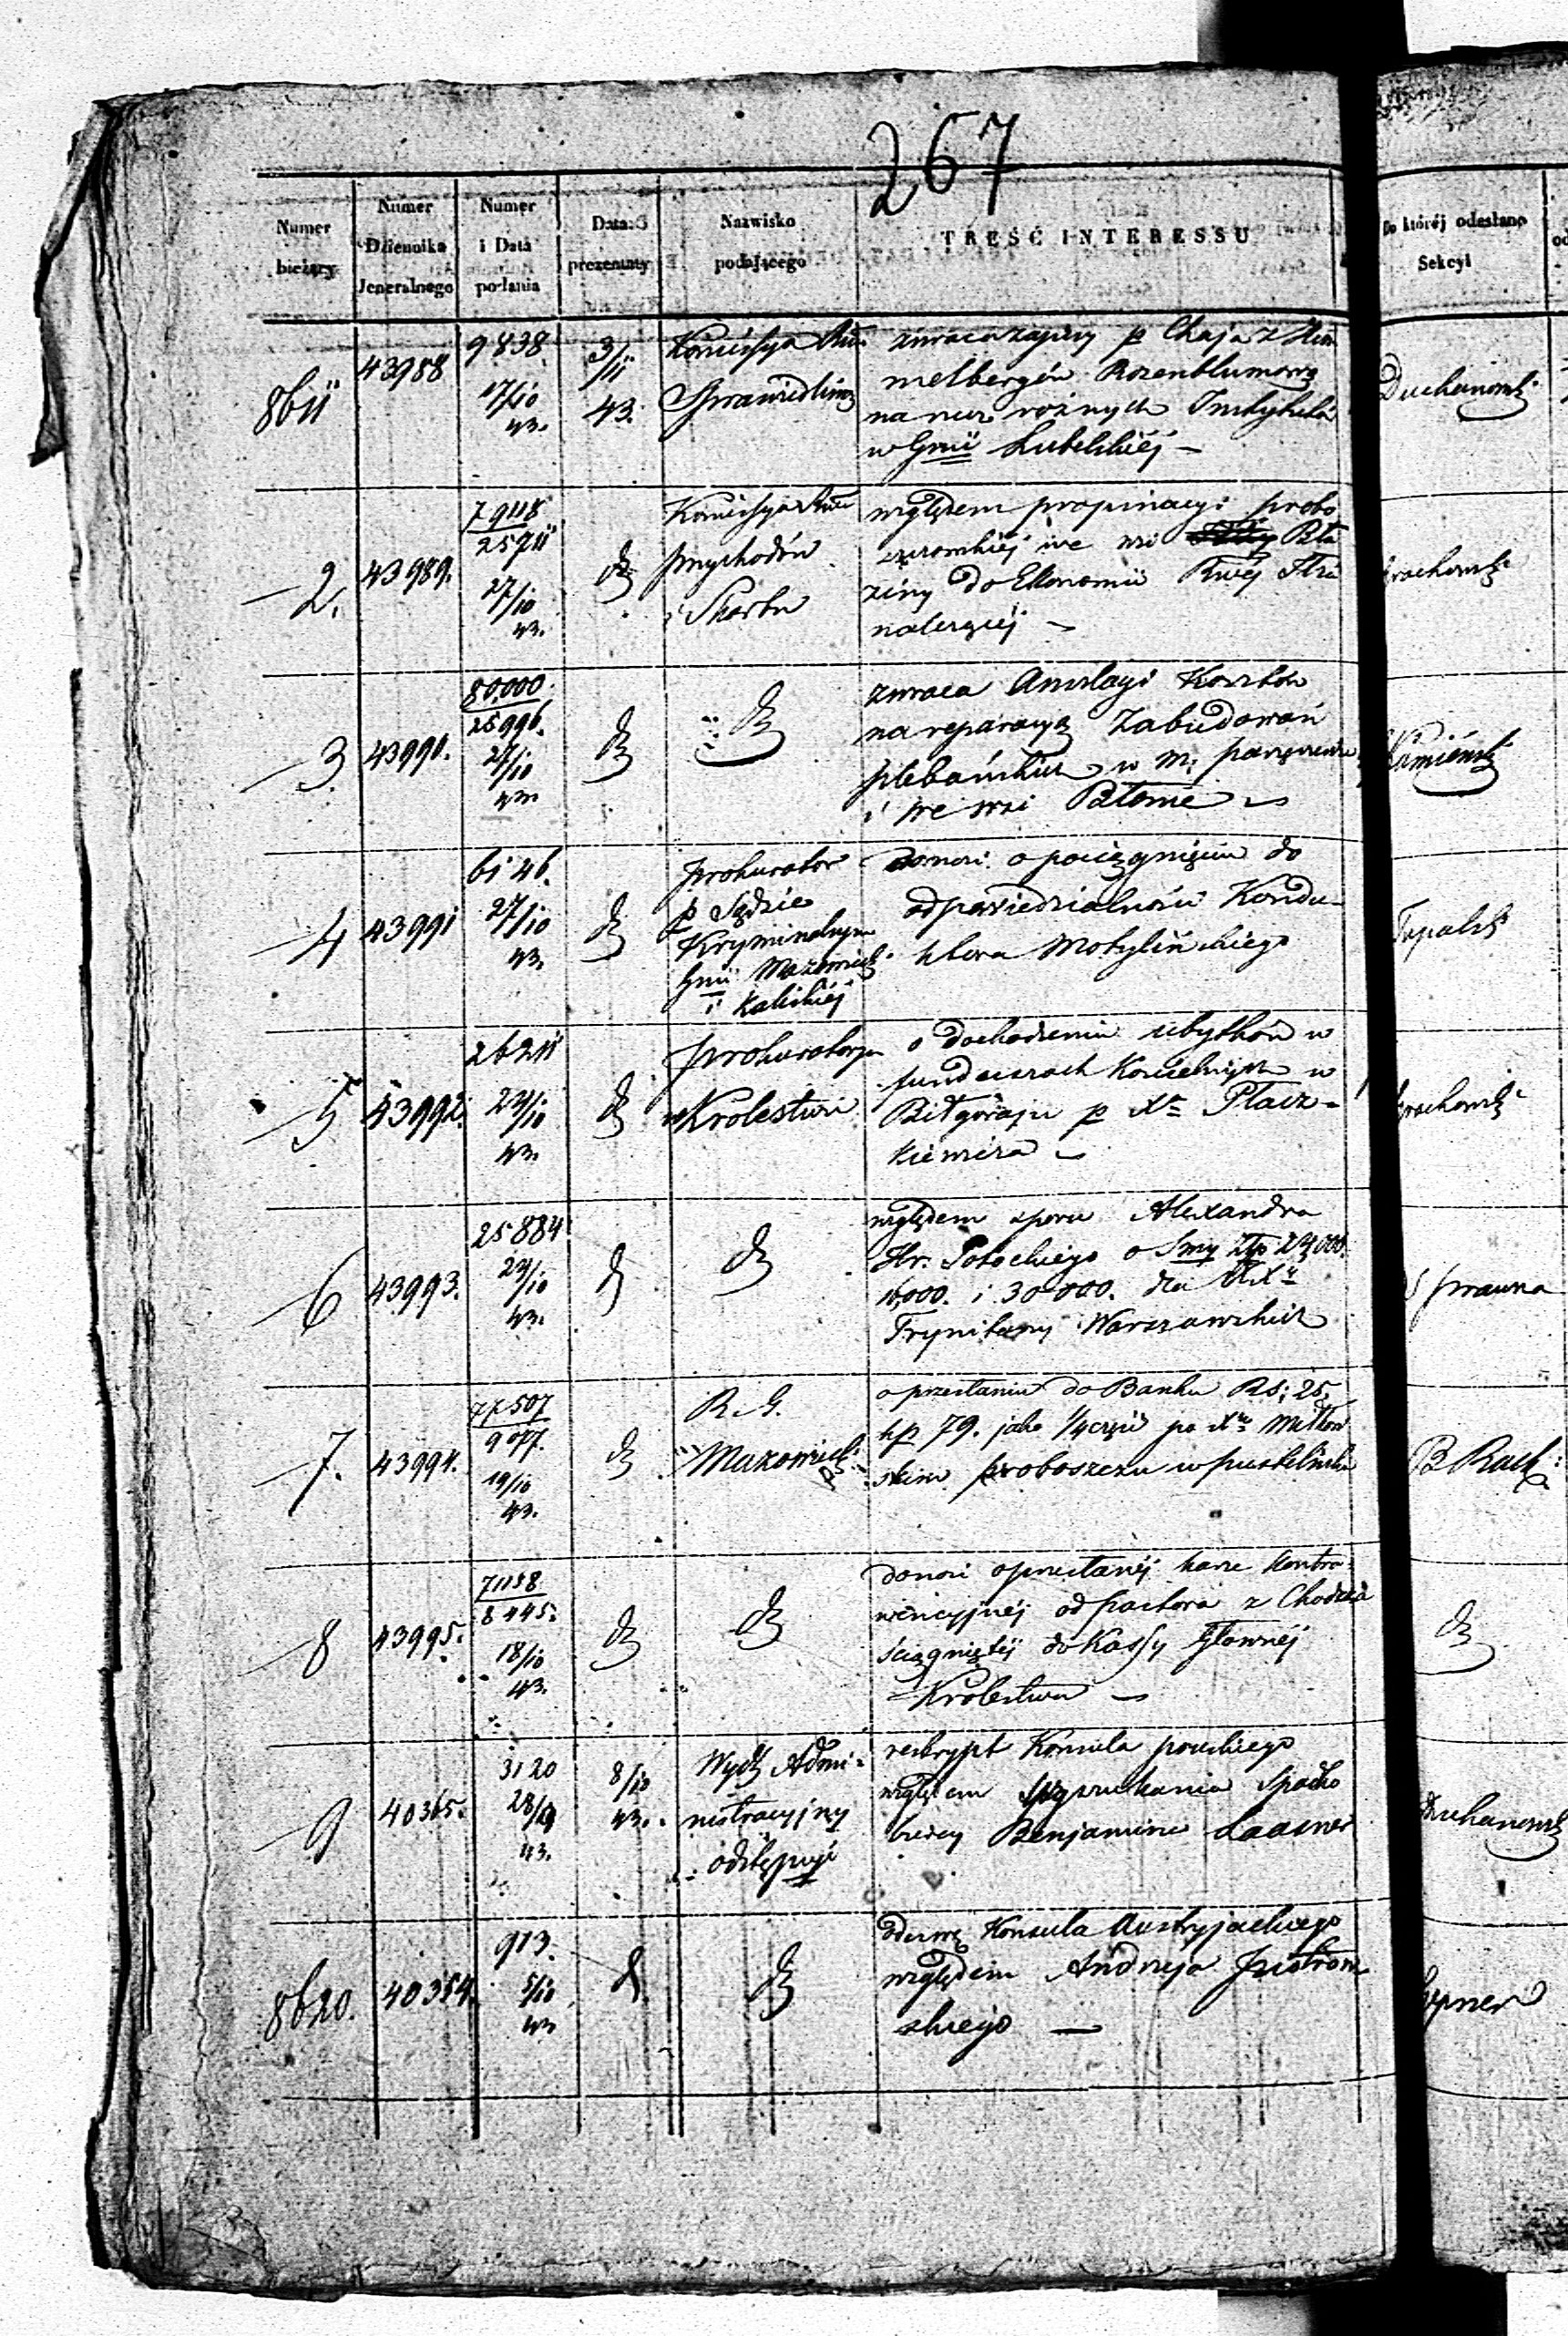 267
Numer
bieżący
Numer
Dziennika
Jeneralnego
Numer
i Data
podania
Data
prezentaty
Nazwisko
podającego
TREŚĆ INTERESSU
Do któréj odesłano
Sekcyi
8611
43988
9838
17/10
43.
3/11
43.
Kommissya
Sprawiedliwoś
zwraca zajęcy p Chaja z Him
melbergów Rozenblumową
na różnych
w Gnii Lubelskiéj —
2.
43989.
7948
27/10
43.
d
Kommissya
przychodów
i Skarbu
względem propinacyi probo
szczowskiéj we wsi
ziny do Ekonomii
należącéj —
rachowsk
3.
43990.
80,000
25996.
27/10
43.
d
d
zwraca Anszlagi Kosztów
na reparacyą Zabudowań
plebańskich w m.
i we wsi Błonie
Kamieńsk
4
43991
6146.
27/10
43.
d
prokurator
p Sądzie
Kryminalnym
Gnii Mazowieck
i Kaliskiéj
donosi o pociągnięciu do
odpowiedzialności Kondu
ktora Motylińskiego
Topolsk
5
43992.
26211
24/10
43.
d
prokuratorya
w Krolestwie
o dochodzeniu ubytków w
funduszach Kościelnych w
Biłgoraju p Xa Płacz-
kiewicza
rachowsk
6
43993.
25884
24/10
43.
d
d
względem sporu Alexandra
Hr. Potockiego o Smy Złp 24,000.
16,000. i 30000. dla XX
Trynitarzy Warszawskich
Sprawna
7.
43994.
77507
9077.
19/10
43.
d
R. G.
Mazowiecki
o przesłaniu do Banku Rs: 25,
kp 79. jako 1/4 część po Xu
skim proboszczu w
B Rach:
8
43995.
71158
8445.
18/10
43.
d
d
donosi o przesłanéj karze Kontra-
wencyjnéj od pachtora z Chodcza
ściągniętéj do Kassy Głownéj
Krolestwa —
d
9
40365.
3120
28/9
43.
8/10
43.
Wydz Admi-
nistracyjny
odstępuje
reskrypt Konsula pruskiego
względem wyszukania Spadko
biercy Benjamina
8620.
40364.
913.
5/10
43
d
d
odezwę Konsula Austryjackiego
względem Andrzeja
skiego —